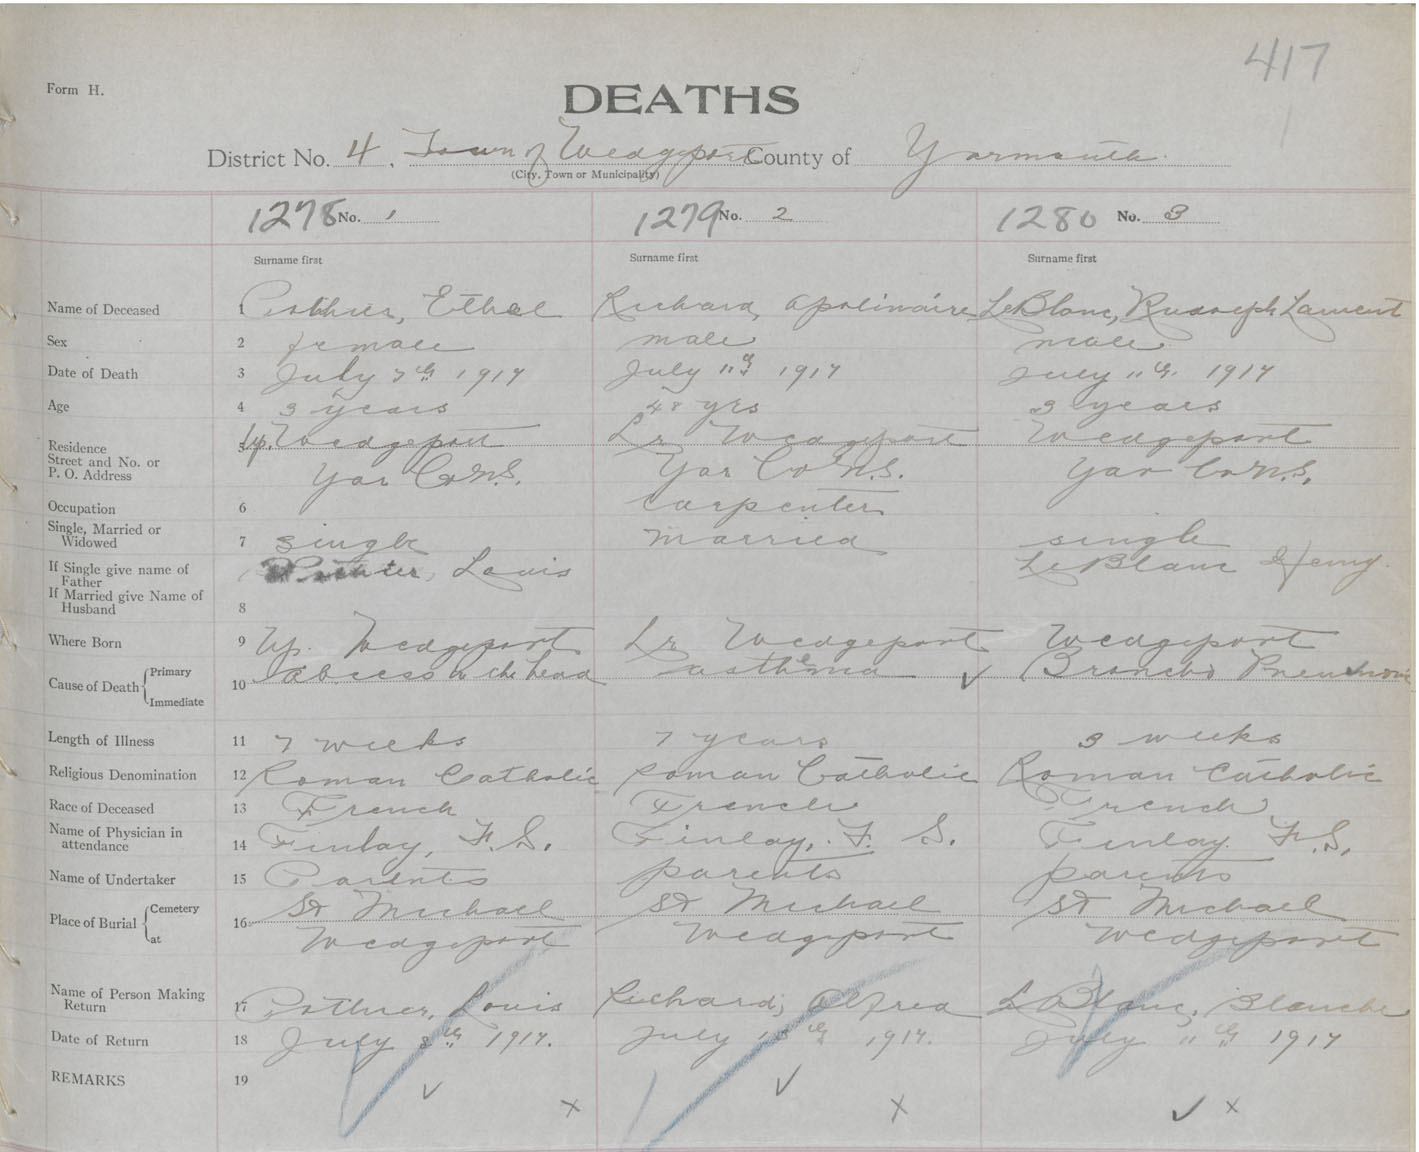 417
Form H.
DEATHS
District No. 4, Town of Wedgeport County of Yarmouth.
(City, Town or Municipality)
1278 No. 1 1279 No. 2 1280 No. 3
Surname first Surname first Surname first
Name of Deceased 1 Pothier, Ethel Richard, Apolinaire LeBlanc, Rudolph Lament
Sex 2 female male male
Date of Death 3 July 7th 1917 July 11th 1917 July 11th 1917
Age 4 3 years 48 yrs 3 years
Residence
Street and No. or
P. O. Address
5 Up. Wedgeport Lr Wedgeport Wedgeport
Yar Co N.S. Yar Co N.S. Yar Co N.S.
Occupation 6 carpenter
Single, Married or
Widowed
7 single married single
If Single give name of
Father
Pothier, Louis LeBlanc
If Married give Name of
Husband
8
Where Born 9 Up. Wedgeport Lr Wedgeport Wedgeport
Cause of Death { Primary
Immediate
10 abcess in the head asthma ✓ Broncho Pneumonia
Length of Illness 11 7 weeks 7 years 3 weeks
Religious Denomination 12 Roman Catholic Roman Catholic Roman Catholic
Race of Deceased 13 French French French
Name of Physician in
attendance
14 Finlay, F. S. Finlay, F. S. Finlay F. S.
Name of Undertaker 15 Parents parents parents
Place of Burial { Cemetery
at
16 St Michael St Michael St Michael
Wedgeport Wedgeport Wedgeport
Name of Person Making
Return
17 Pothier, Louis Richard, Alfred LeBlanc, Blanche
Date of Return 18 July 8th 1917. July 1917. July 11th 1917
REMARKS 19
✓ x ✓ x ✓ x